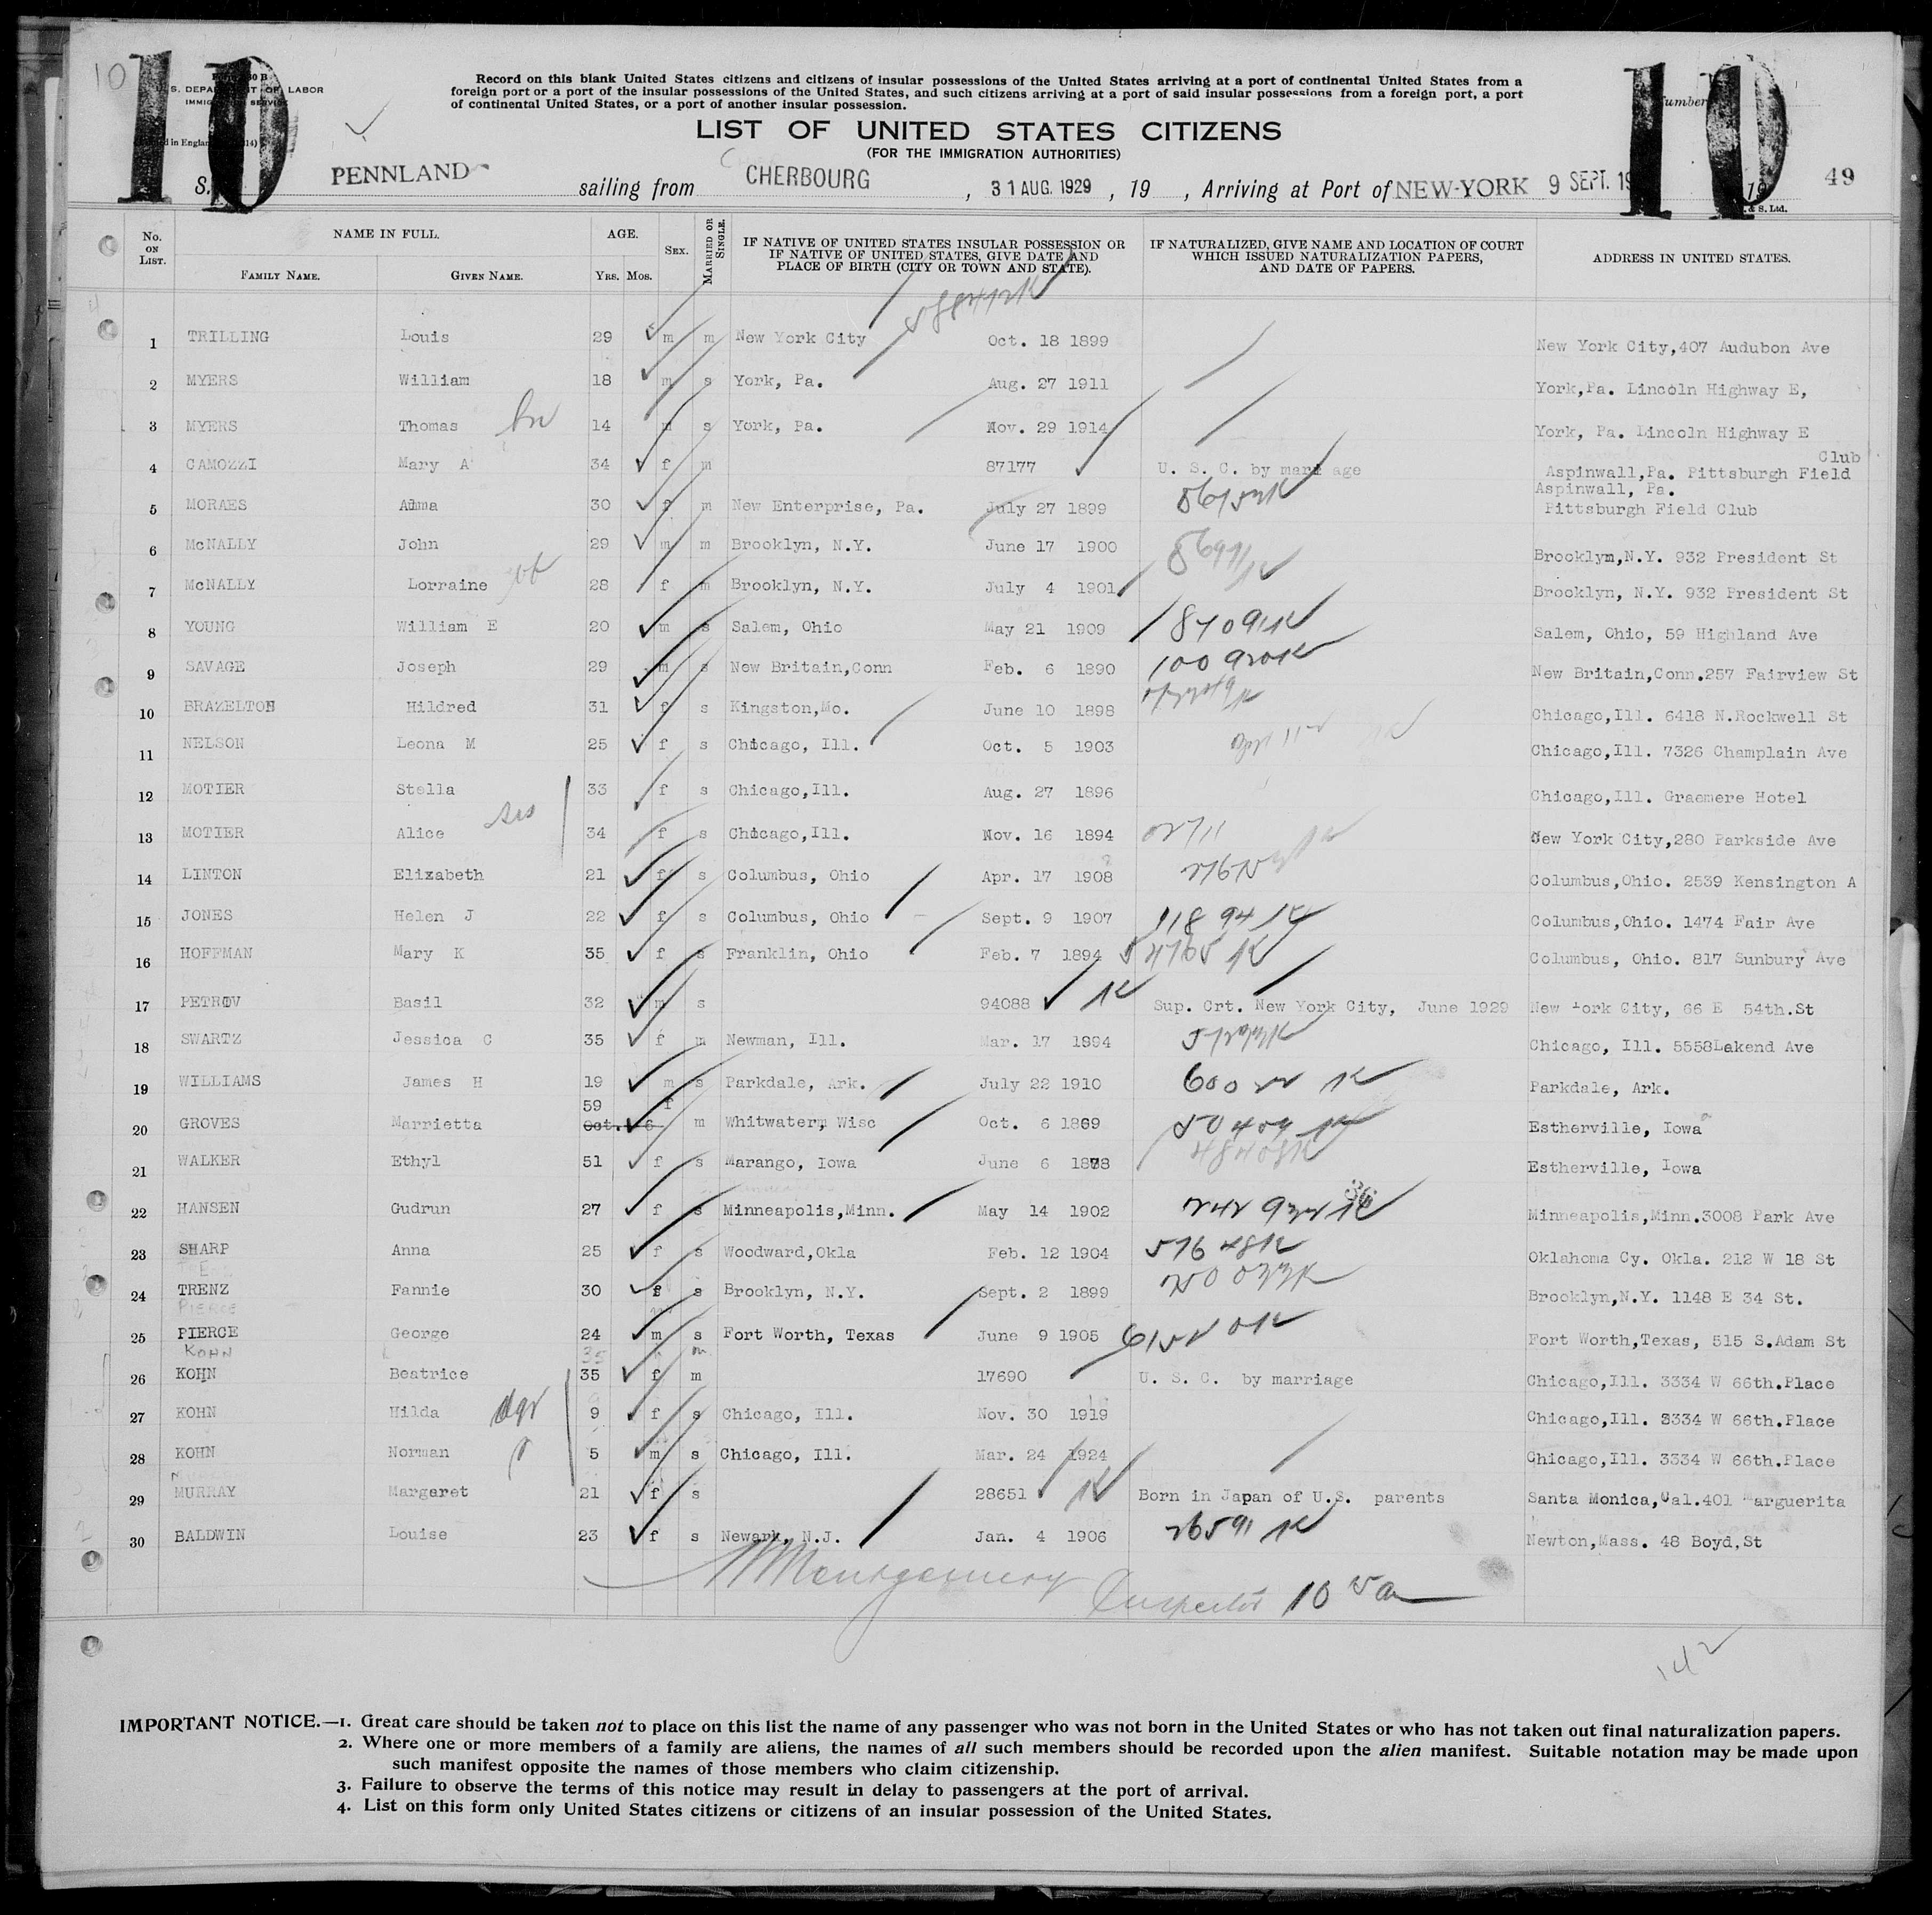 10
10
10
Record on this blank United States citizens and citizens of insular possessions of the United States arriving at a port of continental United States from a
foreign port or a port of the insular possessions of the United States, and such citizens arriving at a port of said insular possessions from a foreign port, a port
of continental United States, or a port of another insular possession.
LIST OF UNITED STATES CITIZENS
(FOR THE IMMIGRATION AUTHORITIES)
PENNLAND sailing from CHERBOURG, 31 AUG. 1929, 19 , Arriving at Port of NEW-YORK 9 SEPT. 19 49
No. ON LIST.
NAME IN FULL.
FAMILY NAME. GIVEN NAME.
AGE.
YRS. MOS.
SEX.
MARRIED OR SINGLE.
IF NATIVE OF UNITED STATES INSULAR POSSESSION OR
IF NATIVE OF UNITED STATES, GIVE DATE AND
PLACE OF BIRTH (CITY OR TOWN AND STATE).
IF NATURALIZED, GIVE NAME AND LOCATION OF COURT
WHICH ISSUED NATURALIZATION PAPERS,
AND DATE OF PAPERS.
ADDRESS IN UNITED STATES.
1 TRILLING Louis 29 m m New York City Oct. 18 1899 New York City,407 Audubon Ave
2 MYERS William 18 m s York, Pa. Aug. 27 1911 York,Pa. Lincoln Highway E,
3 MYERS Thomas 14 m s York, Pa. Nov. 29 1914 York, Pa. Lincoln Highway E
4 CAMOZZI Mary A 34 f m 87177 U. S. C. by marriage Aspinwall,Pa. Pittsburgh Field Club
5 MORAES Anna 30 f m New Enterprise, Pa. July 27 1899 Aspinwall, Pa.
Pittsburgh Field Club
6 McNALLY John 29 m m Brooklyn, N.Y. June 17 1900 Brooklyn,N.Y. 932 President St
7 McNALLY Lorraine 28 f m Brooklyn, N.Y. July 4 1901 Brooklyn, N.Y. 932 President St
8 YOUNG William E 20 m s Salem, Ohio May 21 1909 Salem, Ohio, 59 Highland Ave
9 SAVAGE Joseph 29 m s New Britain,Conn Feb. 6 1890 New Britain,Conn.257 Fairview St
10 BRAZELTON Hildred 31 f s Kingston,Mo. June 10 1898 Chicago,Ill. 6418 N.Rockwell St
11 NELSON Leona M 25 f s Chicago, Ill. Oct. 5 1903 Chicago,Ill. 7326 Champlain Ave
12 MOTIER Stella 33 f s Chicago,Ill. Aug. 27 1896 Chicago,Ill. Graemere Hotel
13 MOTIER Alice 34 f s Chicago,Ill. Nov. 16 1894 New York City,280 Parkside Ave
14 LINTON Elizabeth 21 f s Columbus, Ohio Apr. 17 1908 Columbus,Ohio. 2539 Kensington A
15 JONES Helen J 22 f s Columbus, Ohio Sept. 9 1907 Columbus,Ohio. 1474 Fair Ave
16 HOFFMAN Mary K 35 f s Franklin, Ohio Feb. 7 1894 Columbus, Ohio. 817 Sunbury Ave
17 PETROV Basil 32 m s 94088 Sup. Crt. New York City, June 1929 New York City, 66 E 54th.St
18 SWARTZ Jessica C 35 f m Newman, Ill. Mar. 17 1894 Chicago, Ill. 5558Lakend Ave
19 WILLIAMS James H 19 m s Parkdale, Ark. July 22 1910 Parkdale, Ark.
20 GROVES Marrietta 59 Oct. 6 f m Whitwater, Wisc Oct. 6 1869 Estherville, Iowa
21 WALKER Ethyl 51 f s Marango, Iowa June 6 1878 Estherville, Iowa
22 HANSEN Gudrun 27 f s Minneapolis,Minn. May 14 1902 Minneapolis,Minn.3008 Park Ave
23 SHARP Anna 25 f s Woodward,Okla Feb. 12 1904 Oklahoma Cy. Okla. 212 W 18 St
24 TRENZ Fannie 30 f s Brooklyn, N.Y. Sept. 2 1899 Brooklyn,N.Y. 1148 E 34 St.
25 PIERCE George 24 m s Fort Worth, Texas June 9 1905 Fort Worth,Texas, 515 S.Adam St
26 KOHN Beatrice 35 f m 17690 U. S. C. by marriage Chicago,Ill. 3334 W 66th.Place
27 KOHN Hilda 9 f s Chicago, Ill. Nov. 30 1919 Chicago,Ill. 3334 W 66th.Place
28 KOHN Norman 5 m s Chicago, Ill. Mar. 24 1924 Chicago,Ill. 3334 W 66th.Place
29 MURRAY Margaret 21 f s 28651 Born in Japan of U.S. parents Santa Monica,Cal.401 Marguerita
30 BALDWIN Louise 23 f s Newark, N.J. Jan. 4 1906 Newton,Mass. 48 Boyd,St
Montgomery Inspector
142
IMPORTANT NOTICE.—1. Great care should be taken not to place on this list the name of any passenger who was not born in the United States or who has not taken out final naturalization papers.
2. Where one or more members of a family are aliens, the names of all such members should be recorded upon the alien manifest. Suitable notation may be made upon
such manifest opposite the names of those members who claim citizenship.
3. Failure to observe the terms of this notice may result in delay to passengers at the port of arrival.
4. List on this form only United States citizens or citizens of an insular possession of the United States.